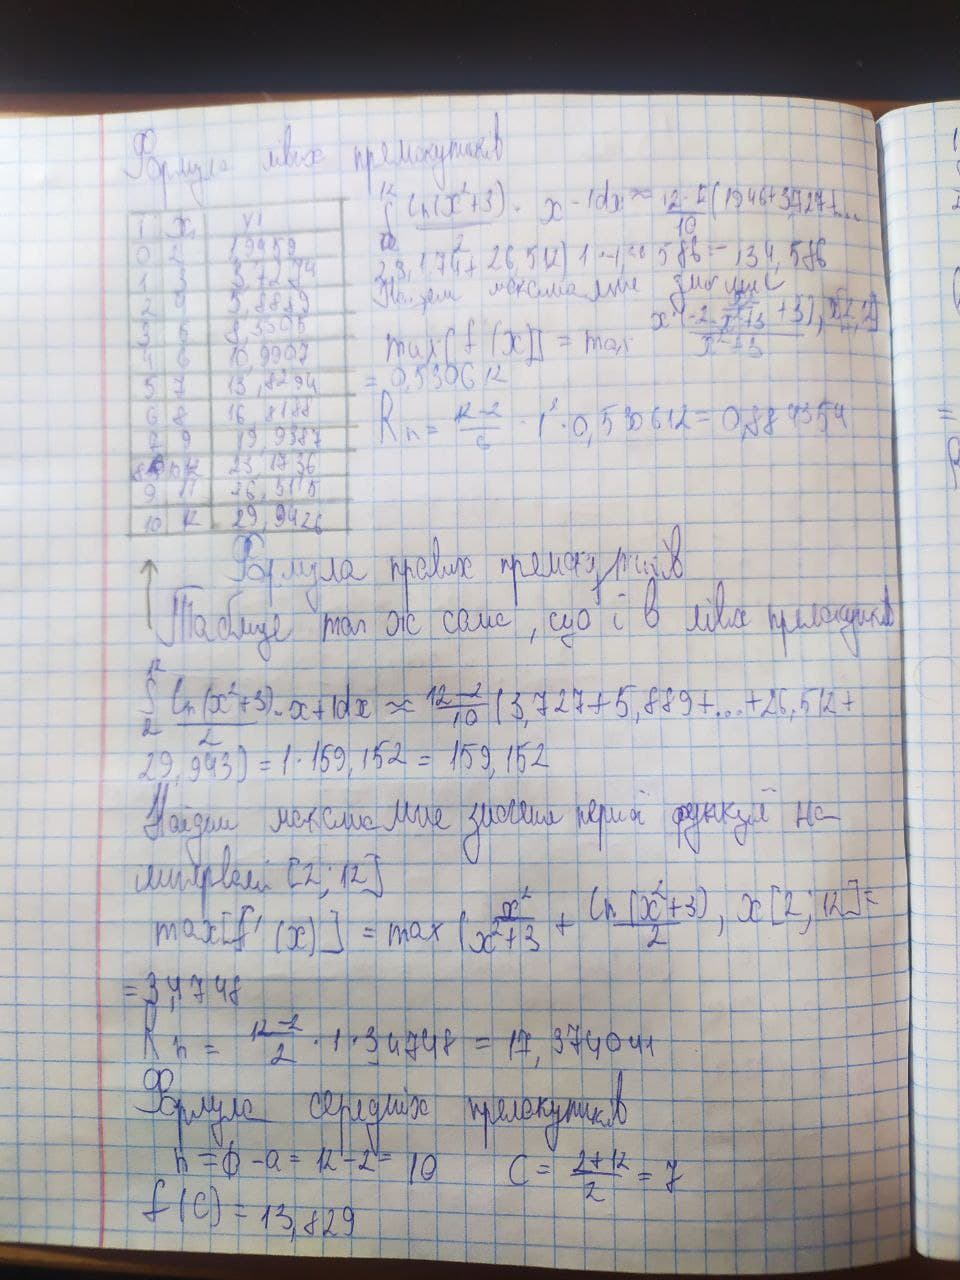 Формула лівих прямокутників
i xi yi
0 2 1,9459
1 3 3,7274
2 4 5,8889
3 5 8,3305
4 6 10,9907
5 7 13,8294
6 8 16,8188
7 9 19,9387
8 23,1736
9 11 26,5115
10 12 29,9426
12
∫ ln(x²+3)/2 · x - 1dx ≈ 12-2/10 (1946+3,727+...
23,174+26,512) 1 586 = 134,586
Найдем максимальне
max[f (x)] = max
= 0,530612
Rn = 12-2/6 · 1² · 0,530612 = 0,884354
Формула правих прямокутників
Таблиця так ож само, що і в лівих прямокутників
12
∫ ln(x²+3)/2 · x+1dx ≈ 12-2/10 (3,727+5,889+...+26,512+
2
29,943) = 1·159,152 = 159,152
Найдем максимальне значення першої функції на
интервалі [2; 12]
max[f' (x)] = max (x²/x²+3 + ln(x²+3)/2, x[2; 12] =
= 3,4748
Rn = 12-2/2 · 1 · 34748 = 17,374041
Формула середніх прямокутників
h = b-a = 12-2= 10 C = 2+12/2 = 7
f(c) = 13,829